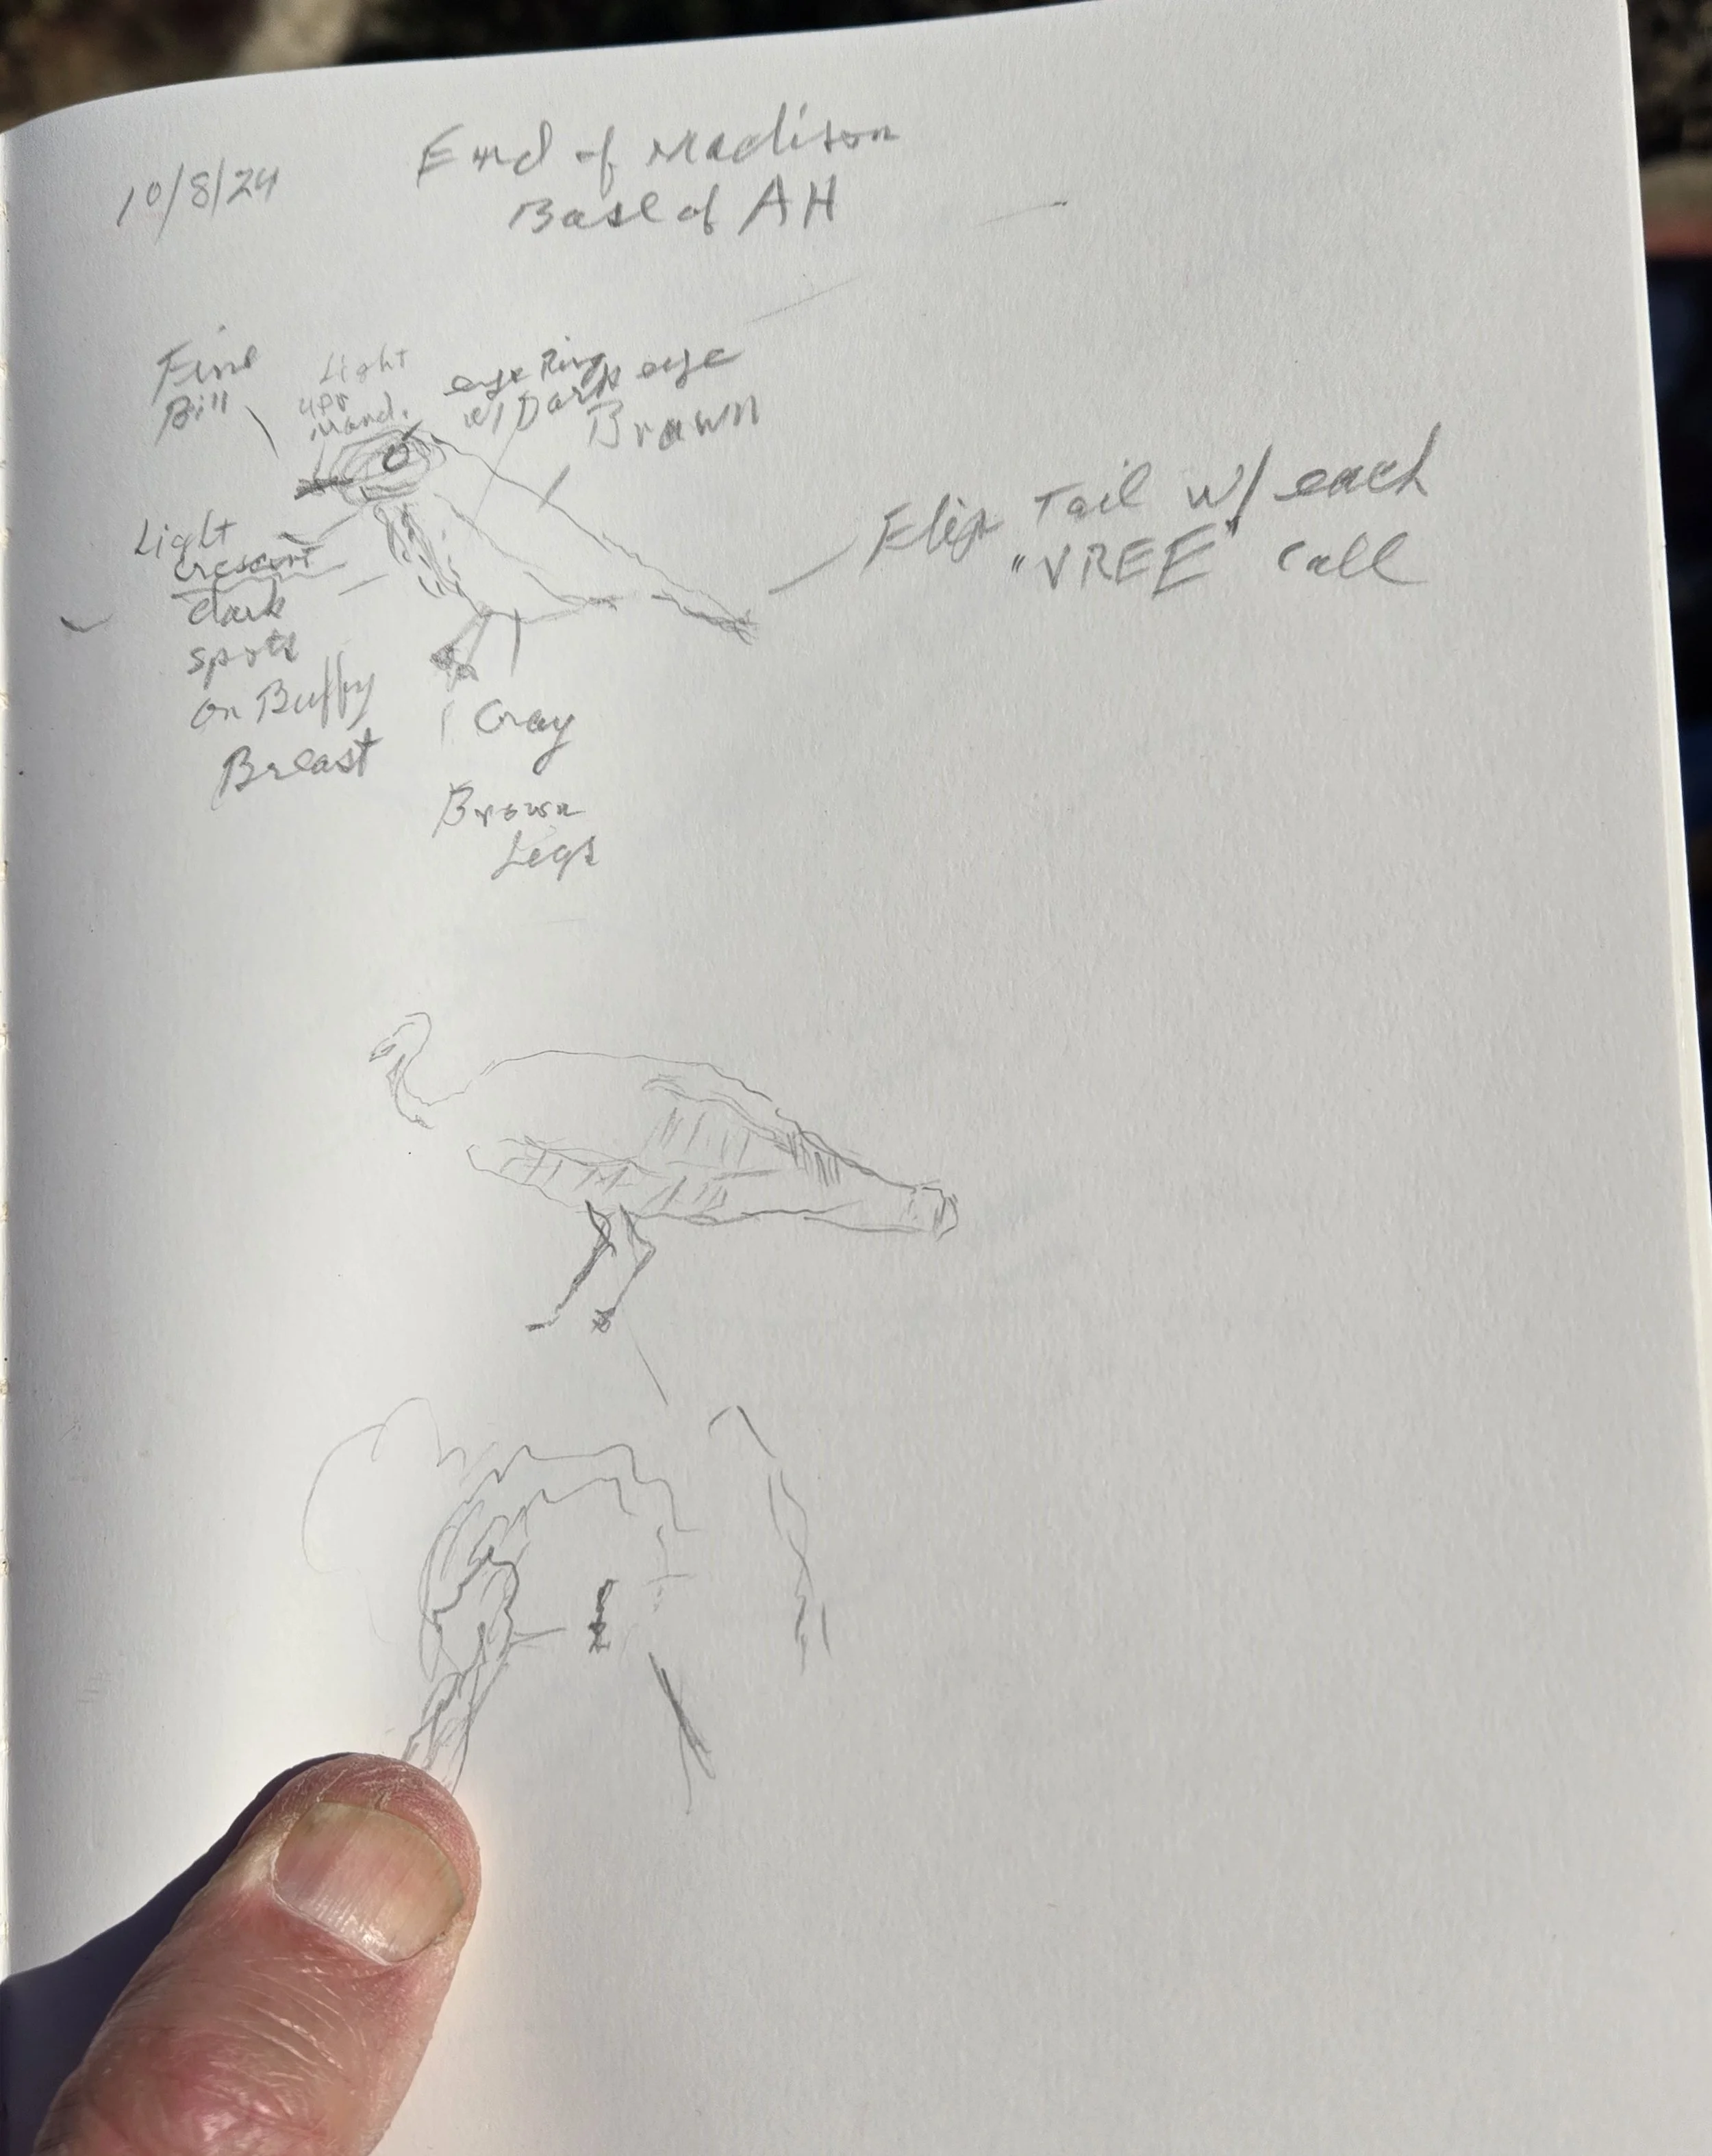 10/8/24
End of Madison
Base of AH
Fine
Bill
Light
upr
Mand.
eye Ring
w/ Dark eye
Brown
Flips Tail w/ each
"VREE" call
Light
crescent
dark
spots
on Buffy
Breast
Gray
Brown
Legs